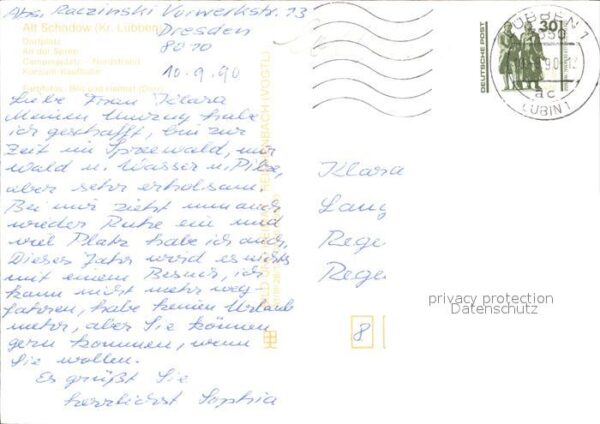 Abs. Raczinski Vorwerkstr. 13
Dresden
8010
10.9.90
Alt Schadow (Kr. Lübben)
Dorfplatz
An der Spree
Campingplatz - Nordstrand
Konsum-Kaufhalle
Liebe Frau Klara
Meinen Umzug habe
ich geschafft, bin zur
Zeit im Spreewald, nur
Wald u. Wasser u. Pilze,
aber sehr erholsam.
Bei mir zieht nun auch
wieder Ruhe ein und
viel Platz habe ich auch.
Dieses Jahr wird es nichts
mit einem Besuch, ich
kann nicht mehr weg-
fahren, habe keinen Urlaub
mehr, aber Sie können
gern kommen, wenn
Sie wollen.
Es grüßt Sie
herzlichst Sophia
DEUTSCHE POST
30
LÜBBEN 1
90.12
ac
LUBIN 1
Klara
Lang
Rege
Rege
8
privacy protection
Datenschutz